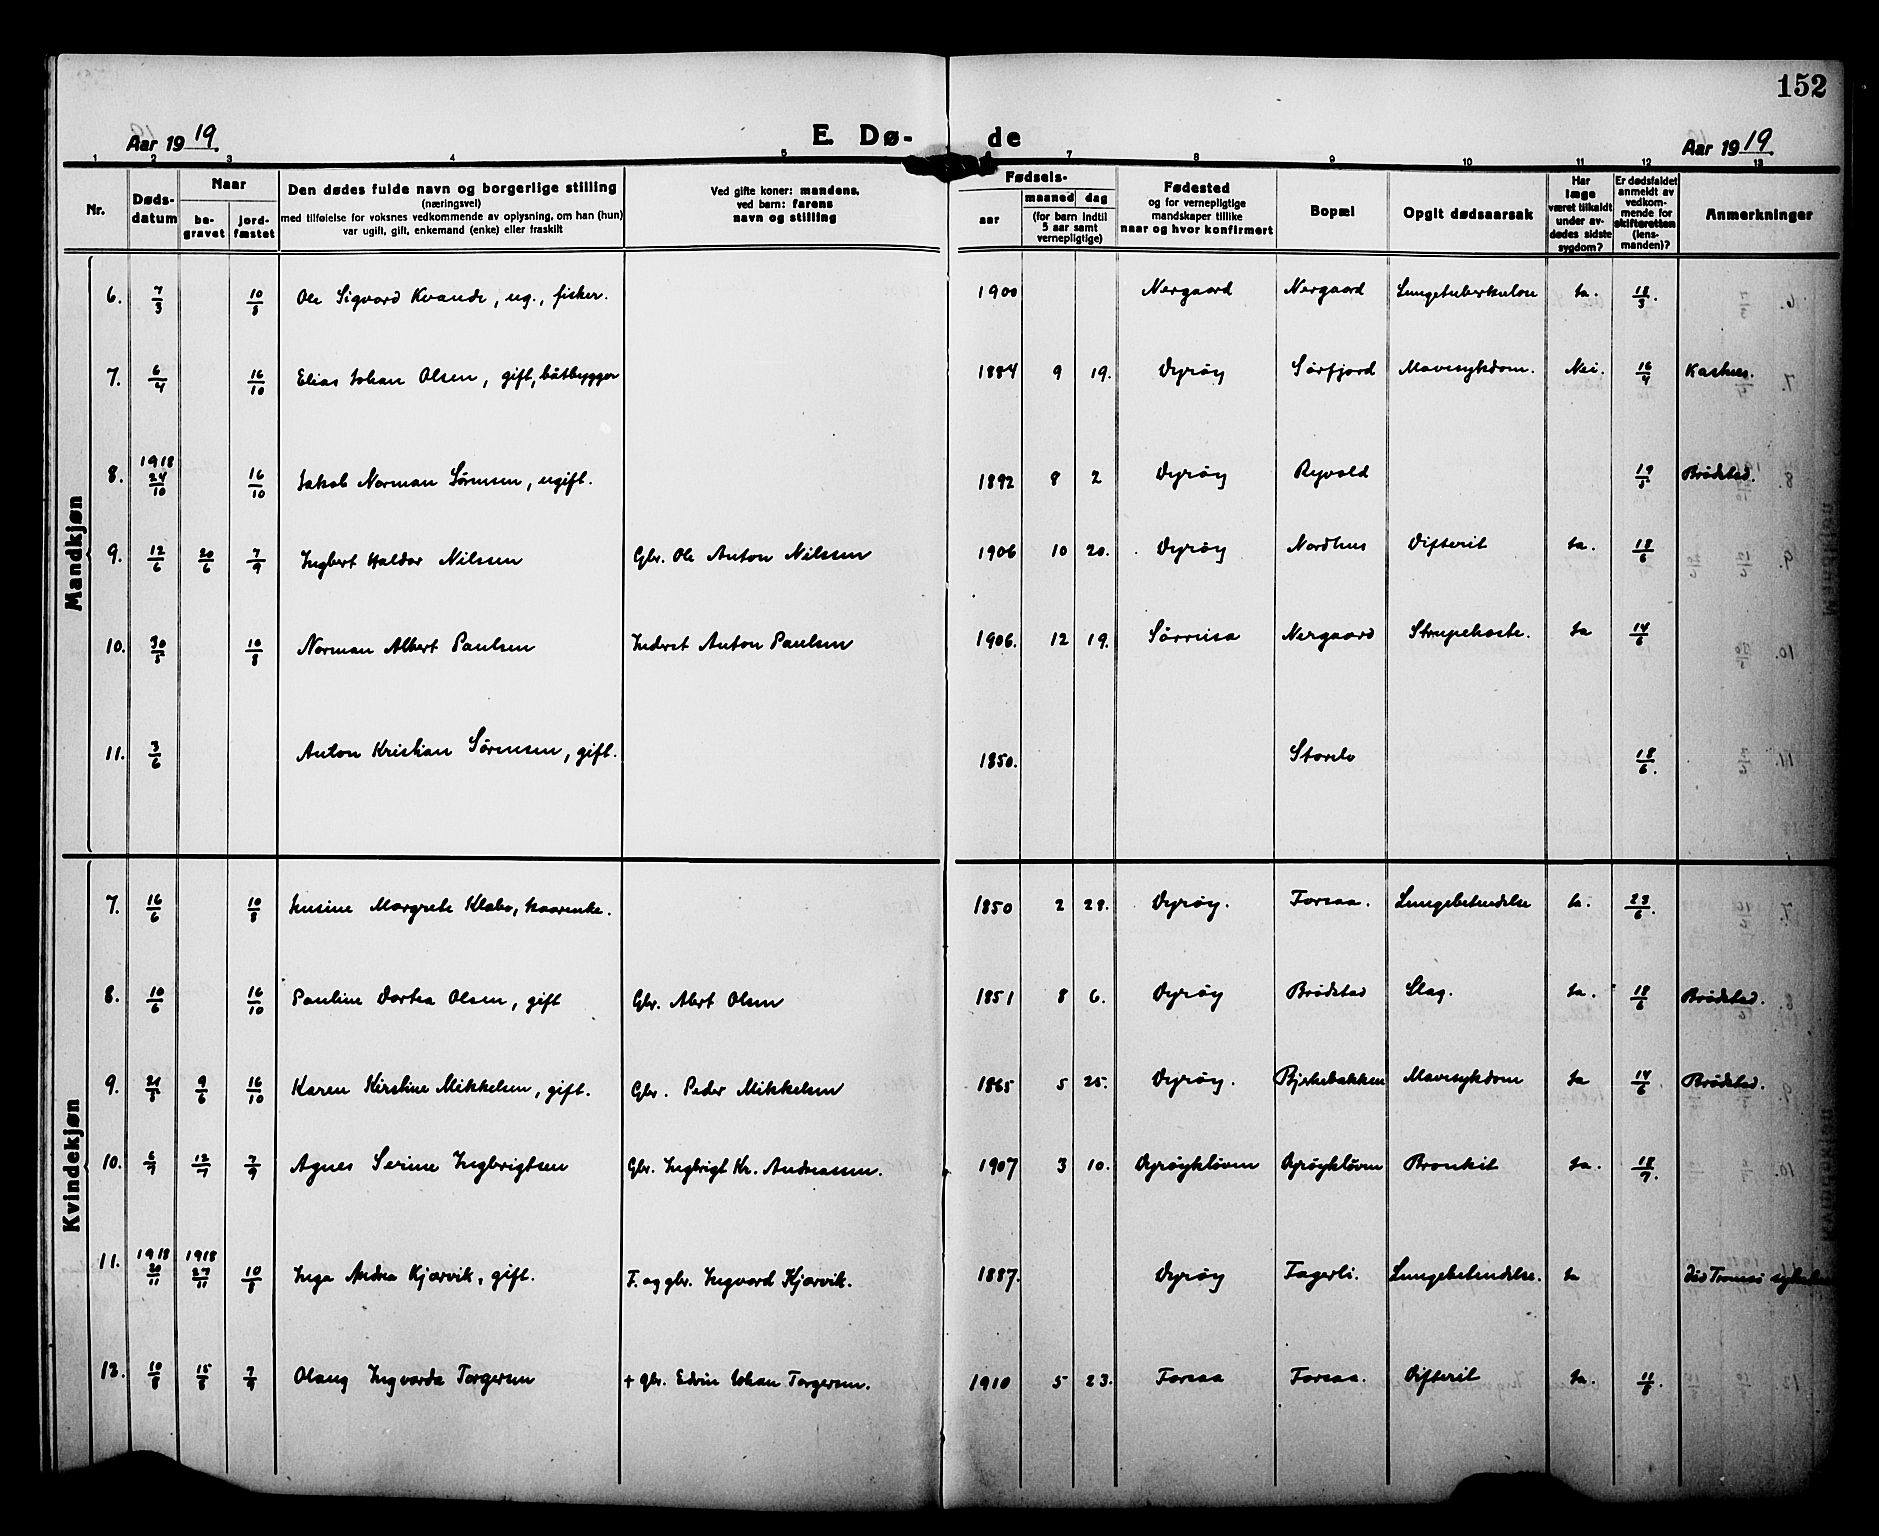 152
Aar 1919. E. Dø- de Aar 1919.
1 2 3 4 5 7 8 9 10 11 12 13
Nr. Døds-datum Naar be-gravet jord-fæstet Den dødes fulde navn og borgerlige stilling (næringsvei) med tilføielse for voksnes vedkommende av oplysning, om han (hun) var ugift, gift, enkemand (enke) eller fraskilt Ved gifte koner: mandens, ved barn: farens navn og stilling Fødsels- aar maaned dag (for barn indtil 5 aar samt vernepligtige) Fødested og for vernepligtige mandskaper tillike naar og hvor konfirmert Bopæl Opgit dødsaarsak Har læge været tilkaldt under av-dødes sidste sygdom? Er dødsfaldet anmeldt av vedkom-mende for skifteretten (lens-manden)? Anmerkninger
Mandkjøn
6. 7/3 10/8 Ole Sigvard Kvande, ug., fisker. 1900 Nergaard Nergaard Lungetuberkulose Ja. 18/3.
7. 6/4 16/10 Elias Johan Olsen, gift, båtbygger 1884 9 19. Dyrøy Sørfjord Mavesykdom. Nei. 16/4 Kastnes.
8. 1918 24/10 16/10 Jakob Norman Sørensen, ugift. 1892 8 2 Dyrøy Ryvold 19/5 Brøstad.
9. 12/6 20/6 7/9 Ingbert Haldor Nilssen Gbr. Ole Anton Nilssen 1906 10 20. Dyrøy Nordhus Difterit Ja. 18/6
10. 30/5 10/8 Norman Albert Paulsen Inderst Anton Paulsen 1906. 12 19. Sørreisa Nergaard Strupehoste. Ja 14/6
11. 3/6 Anton Kristian Sørensen, gift. 1850. Storelv 18/6.
Kvindekjøn
7. 16/6 10/8 Margrete Klabo, kaarenke. 1850 2 28. Dyrøy. Forsaa. Lungebetendelse Ja. 23/6.
8. 10/6 16/10 Pauline Dortea Olsen, gift Gbr. Abert Olsen 1851 8 6. Dyrøy Brøstad Slag. Ja. 18/6 Brøstad.
9. 21/5 9/6 16/10 Karen Kirstine Mikkelsen, gift. Gbr. Peder Mikkelsen 1865 5 25. Dyrøy. Bjerkebakken Mavesykdom Ja 14/6 Brøstad.
10. 6/7 12/7 7/9 Agnes Serine Ingbrigtsen Gbr. Ingbrigt Kr. Andreassen. 1907 3 10. Dyrøykløven Dyrøykløven Bronkit Ja. 18/7.
11. 1918 20/11 1918 27/11 10/8 Inga Andrea Kjærvik, gift. F. og gbr. Ingvard Kjærvik. 1887. Dyrøy Fagerli. Lungebetendelse. Ja Død Tromsø
12. 10/8 15/8 7/9 Olaug Ingvarda Torgersen + gbr. Edvin Johan Torgersen. 1910 5 23. Forsaa Forsaa. Difterit Ja. 11/8.